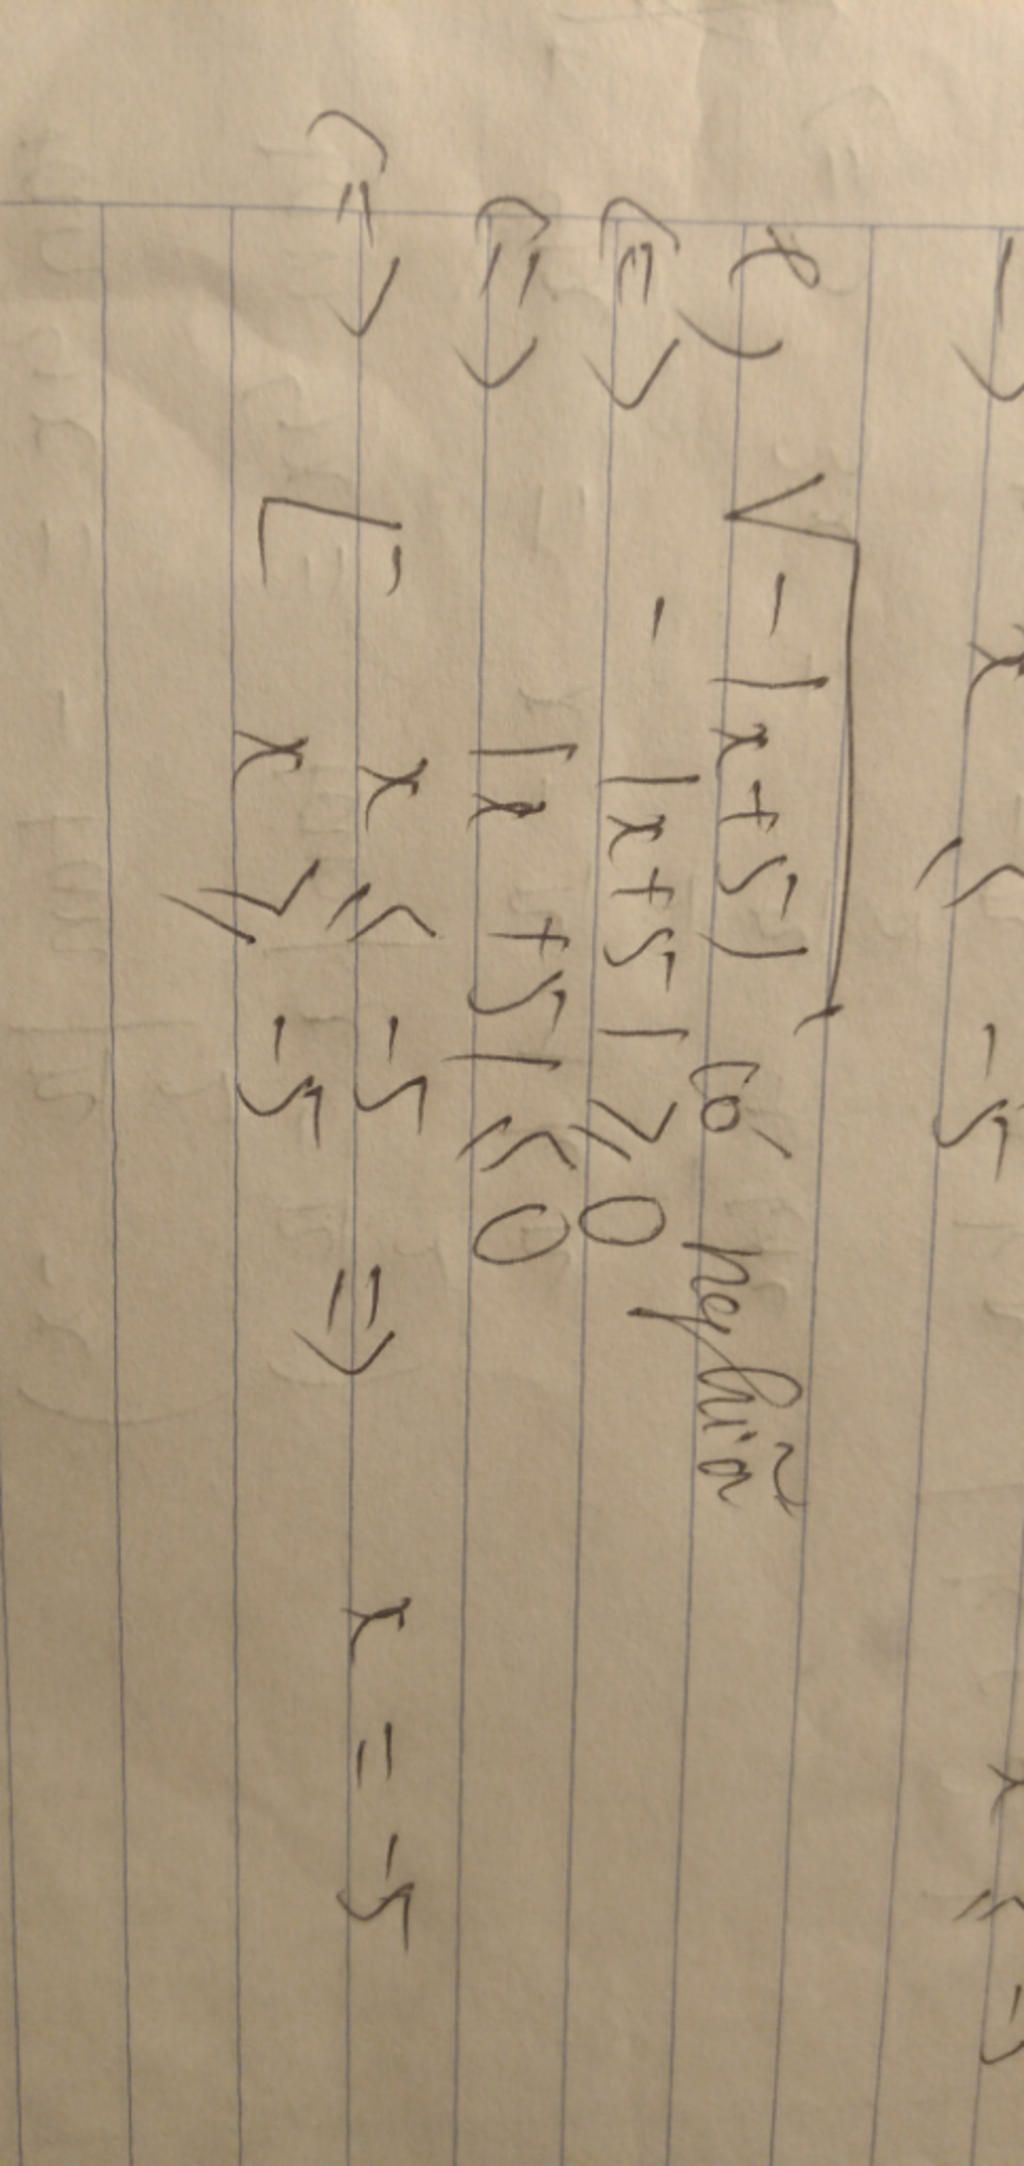 x ≤ -5
e) √-|x+5| có nghĩa
<=> -|x+5| ≥ 0
<=> |x+5| ≤ 0
<=> [ x ≤ -5 => x = -5
x ≥ -5